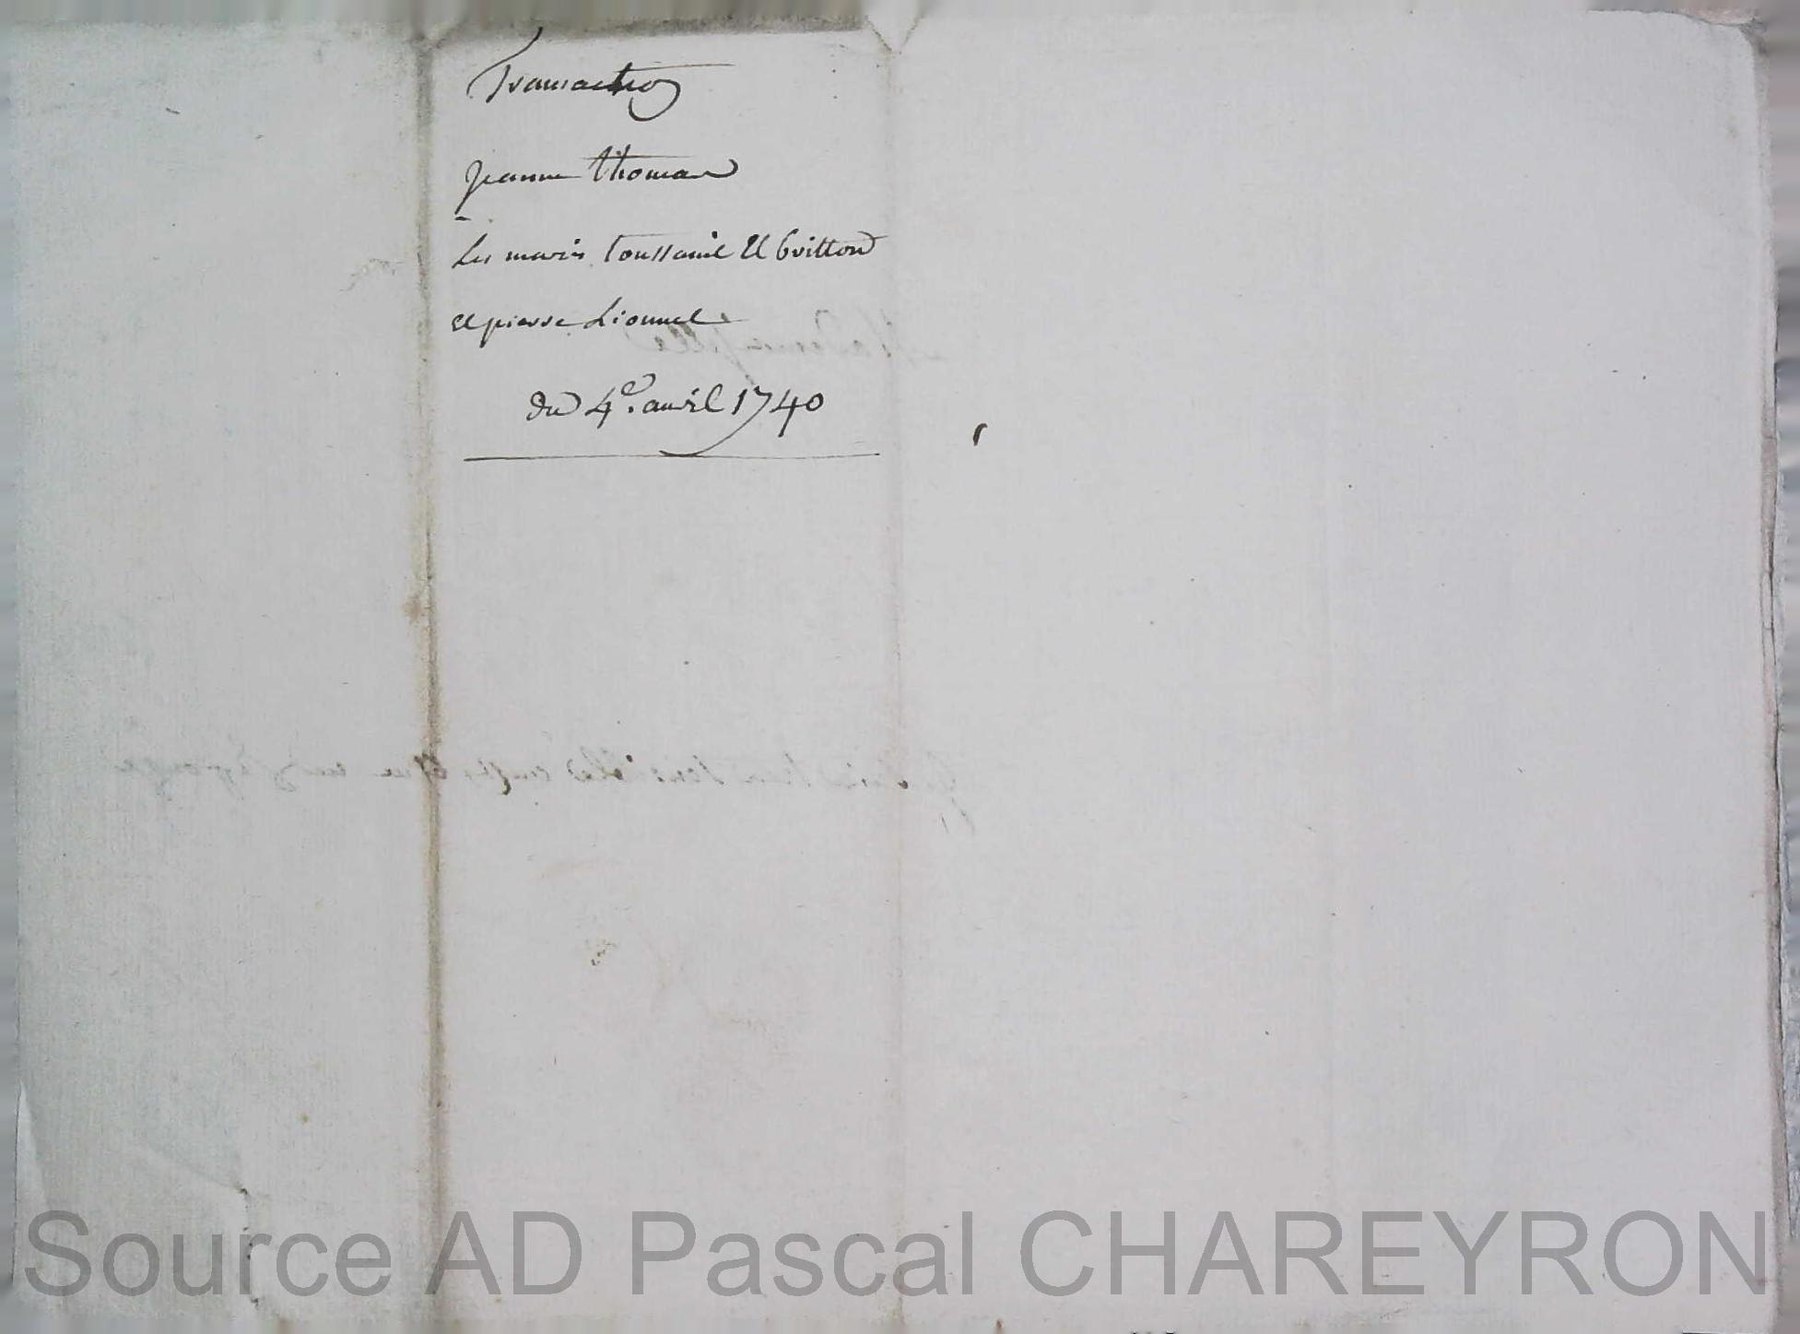 Transaction
jeanne thomas
Les maris toussaint Et britton
Et pierre Lionnet
du 4e. avril 1740
Source AD Pascal CHAREYRON